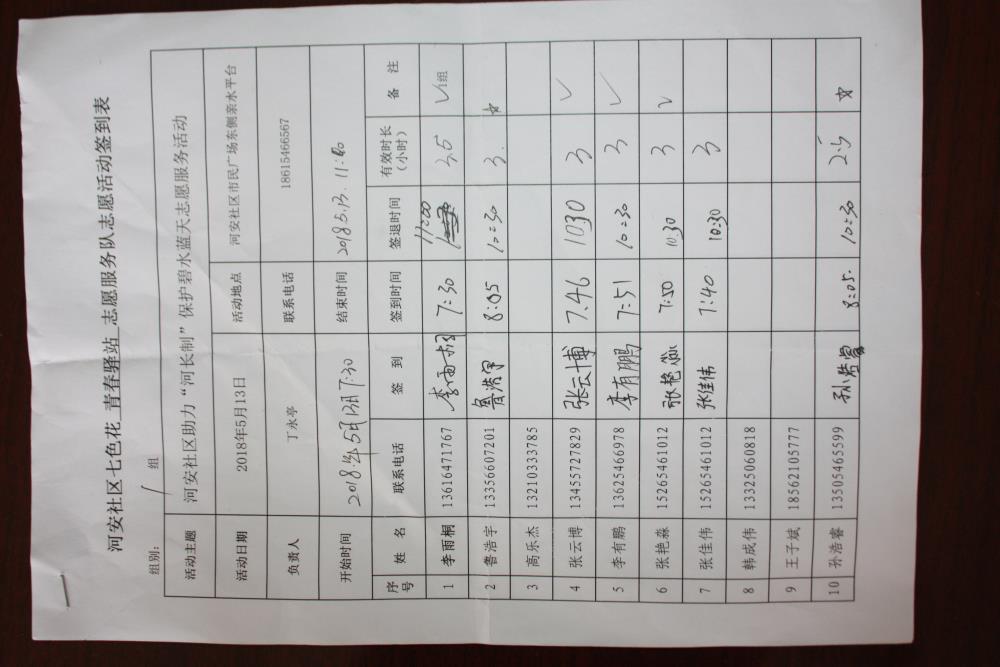 河安社区七色花 青春驿站 志愿服务队志愿活动签到表
组别： 1 组
活动主题 河安社区助力“河长制”保护碧水蓝天志愿服务活动
活动日期 2018年5月13日 活动地点 河安社区市民广场东侧亲水平台
负责人 丁永亭 联系电话 18615466567
开始时间 2018年5月13日7:30 结束时间 2018.5.13. 11:00
序号 姓 名 联系电话 签 到 签到时间 签退时间 有效时长（小时） 备 注
1 李雨桐 13616471767 李雨桐 7:30 11:00 3.5 √1组
2 鲁浩宇 13356607201 鲁浩宇 8:05 10:30 3. ☆
3 高乐杰 13210333785
4 张云博 13455727829 张云博 7.46 10:30 3 √
5 李有鹏 13625466978 李有鹏 7:51 10:30 3 √
6 张艳淼 15265461012 张艳淼 7:50 10:30 3 √
7 张佳伟 15265461012 张佳伟 7:40 10:30 3
8 韩成伟 13325060818
9 王子斌 18562105777
10 孙浩睿 13505465599 孙浩睿 8:05. 10:30 2.5 ☆